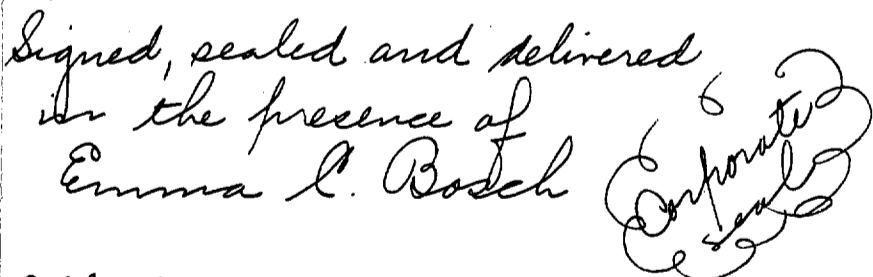 Signed, sealed and delivered
in the presence of
Emma C. Bosch
Corporate
seal